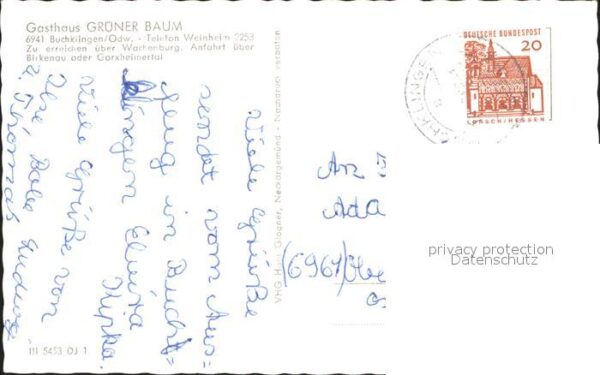 Gasthaus GRÜNER BAUM
6941 Buchklingen/Odw. - Telefon Weinheim 2253
Zu erreichen über Wachenburg. Anfahrt über
Birkenau oder Gorxheimertal
Viele Grüße
sendet vom Aus=
flug in Buch=
klingen
Viele Grüße von
u. Thomas
VHG Hans Glogner, Neckargemünd - Nachdruck verboten
111 5453 OJ 1
DEUTSCHE BUNDESPOST
20
LORSCH/HESSEN
BUCHKLINGEN
An
Ada
(6961)
privacy protection
Datenschutz